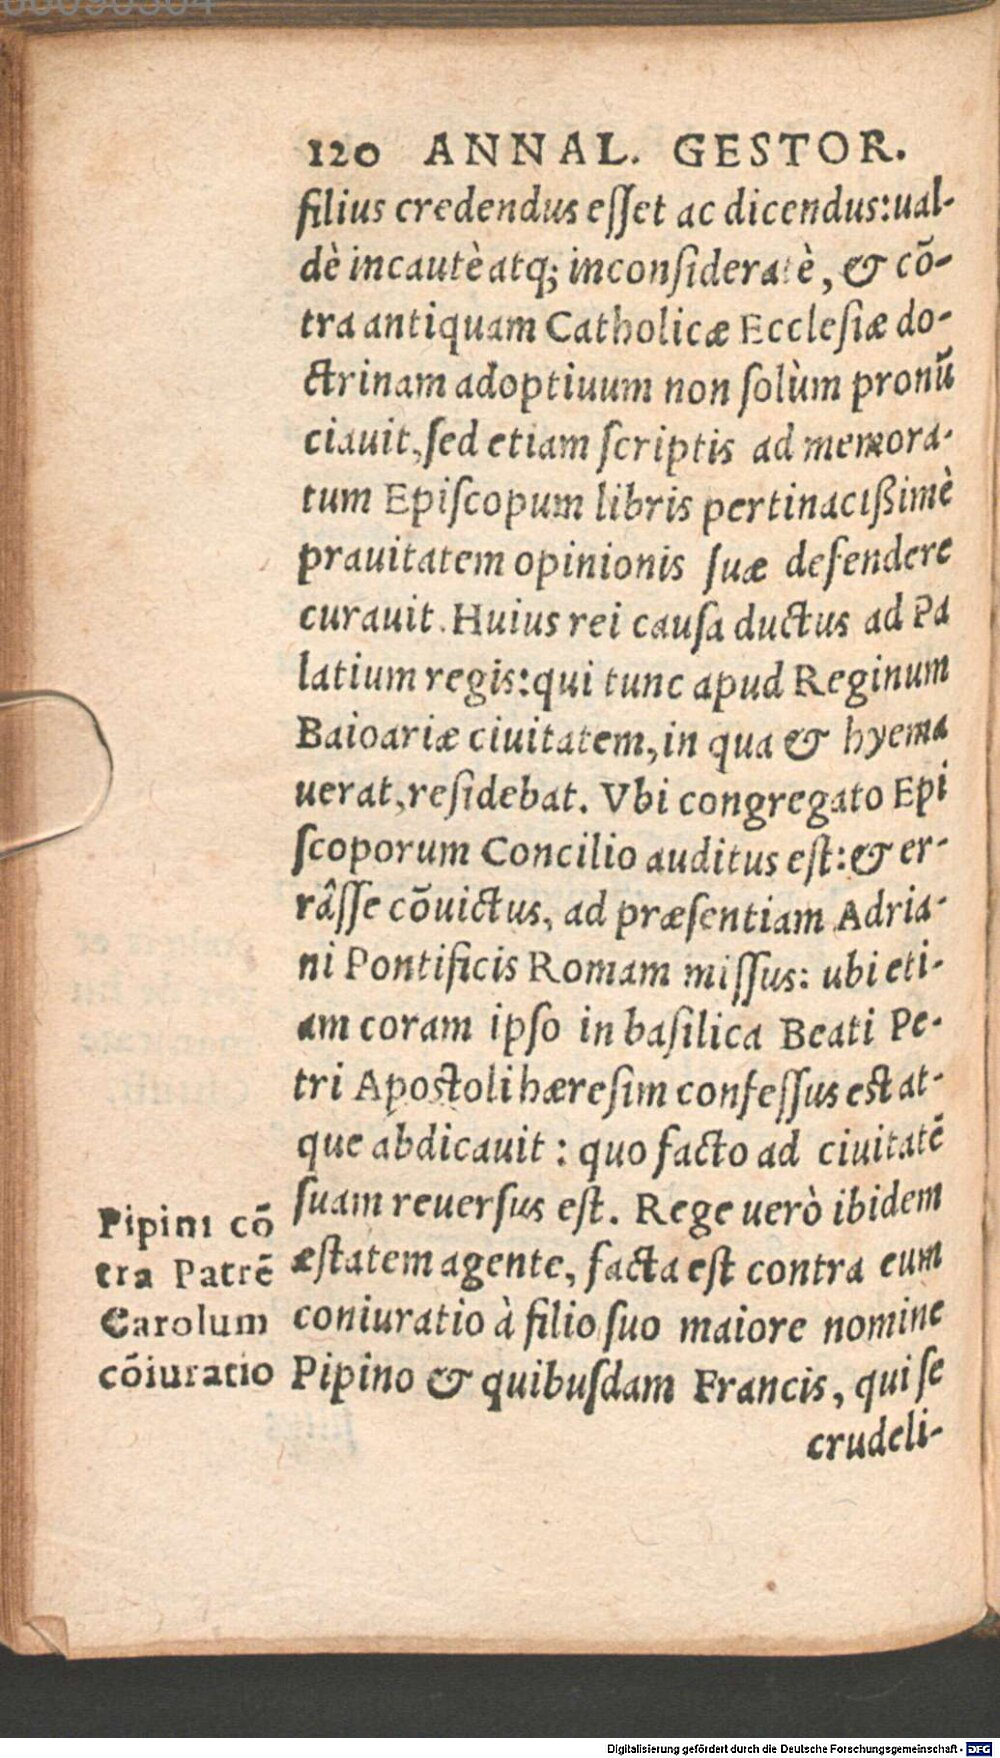 120 ANNAL. GESTOR.
filius credendus eſſet ac dicendus: ual-
dè incautè atq; inconsideratè, & cō-
tra antiquam Catholicæ Eccleſiæ do-
ctrinam adoptiuum non ſolùm pronū
ciauit, ſed etiam ſcriptis ad memora-
tum Epiſcopum libris pertinacißimè
prauitatem opinionis ſuæ defendere
curauit. Huius rei cauſa ductus ad Pa
latium regis: qui tunc apud Reginum
Baioariæ ciuitatem, in qua & hyema
uerat, reſidebat. Vbi congregato Epi
ſcoporum Concilio auditus eſt: & er-
râſſe cōuictus, ad præſentiam Adria-
ni Pontificis Romam miſſus: ubi eti-
am coram ipſo in baſilica Beati Pe-
tri Apoſtoli hæreſim confeſſus eſt at-
que abdicauit: quo facto ad ciuitatē
ſuam reuerſus eſt. Rege uerò ibidem
æſtatem agente, facta eſt contra eum
coniuratio à filio ſuo maiore nomine
Pipino & quibuſdam Francis, qui ſe
crudeli-
Pipini cō
tra Patrē
Carolum
cōiuratio
Digitalisierung gefördert durch die Deutsche Forschungsgemeinschaft - DFG